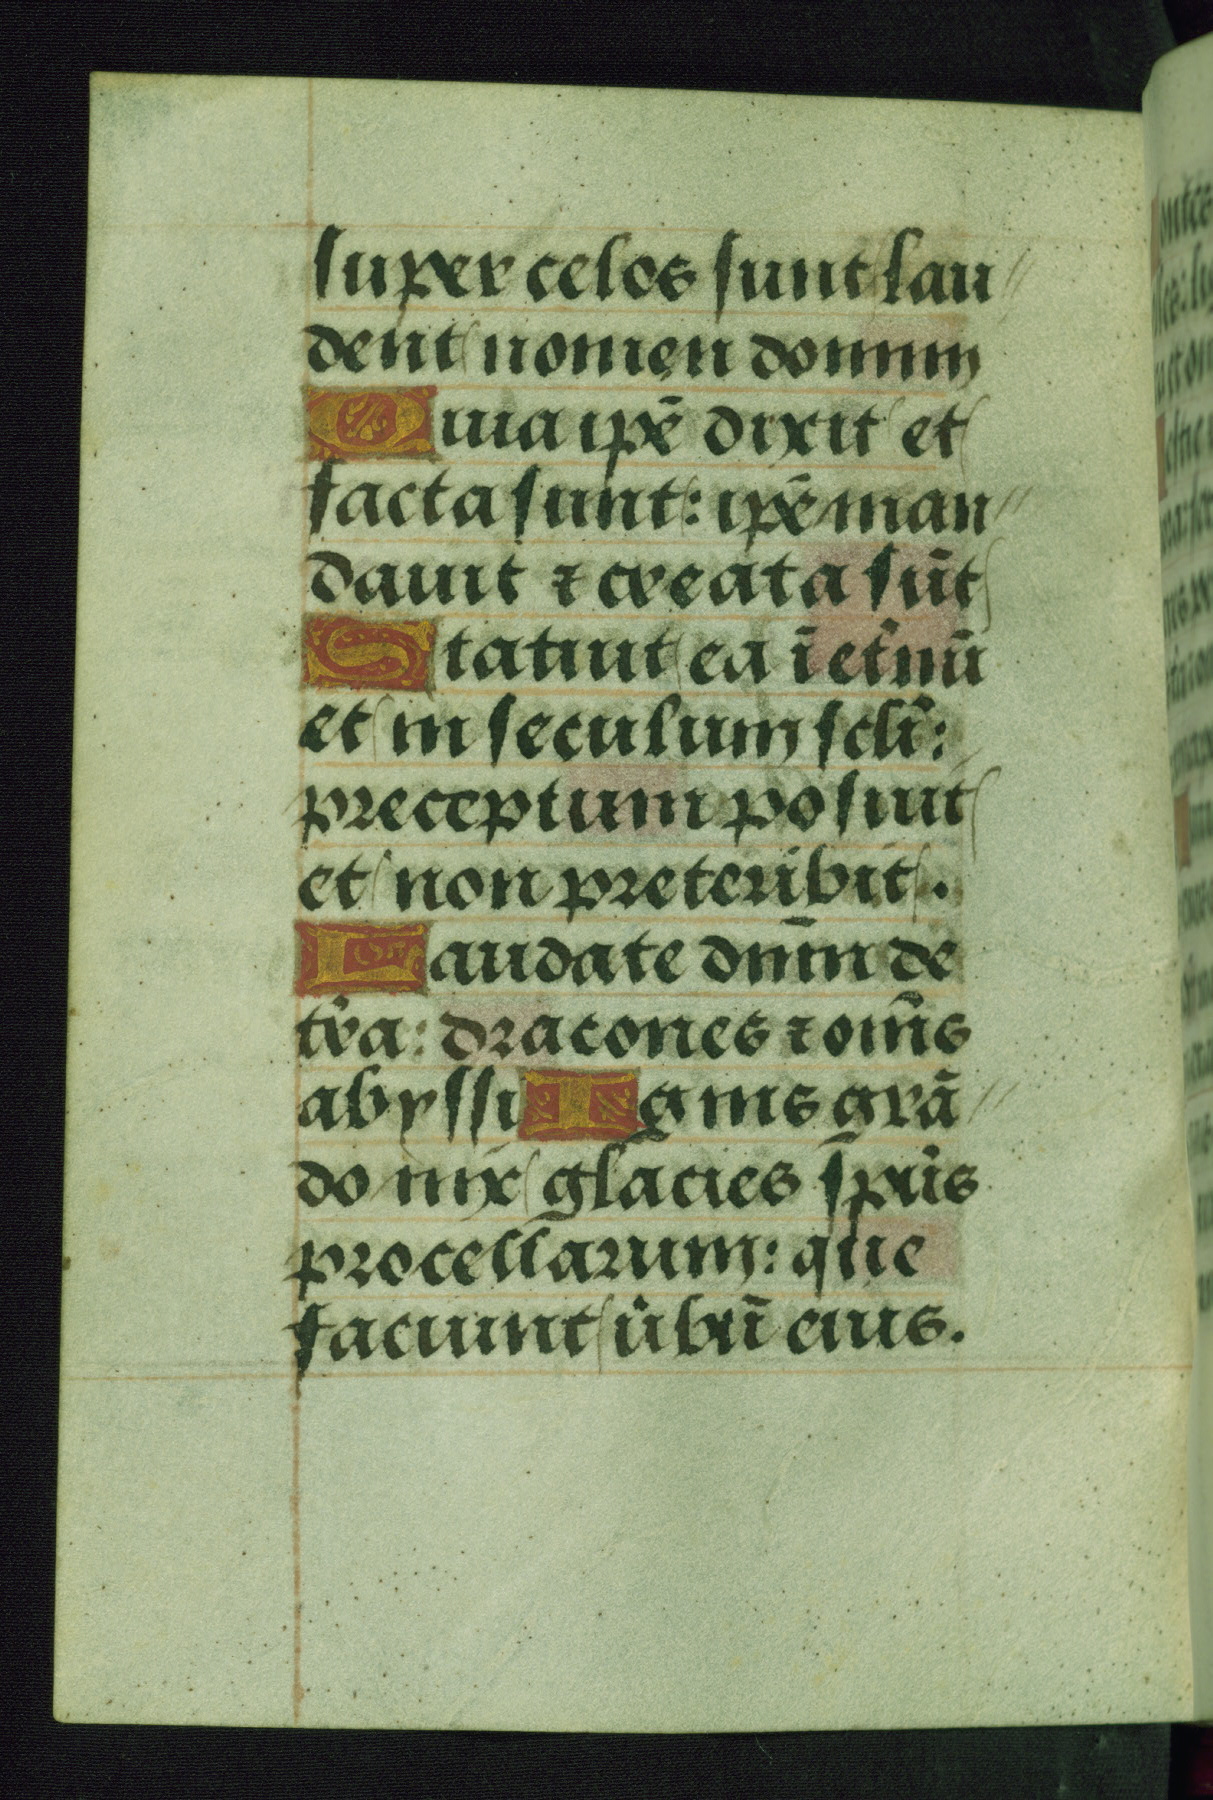 super celos sunt lau//
dent nomen domini
Quia ip̄e dixit et
facta sunt: ip̄e man//
dauit ⁊ creata sūt
Statuit ea ī et̓nū
et in seculum sc̄li:
preceptum posuit
et non preteribit.
Laudate dn̄m de
t̓ra: dracones ⁊ om̄s
abyssi Ignis grā//
do nix glacies sp̄us
procellarum: que
faciunt u̓bū eius.